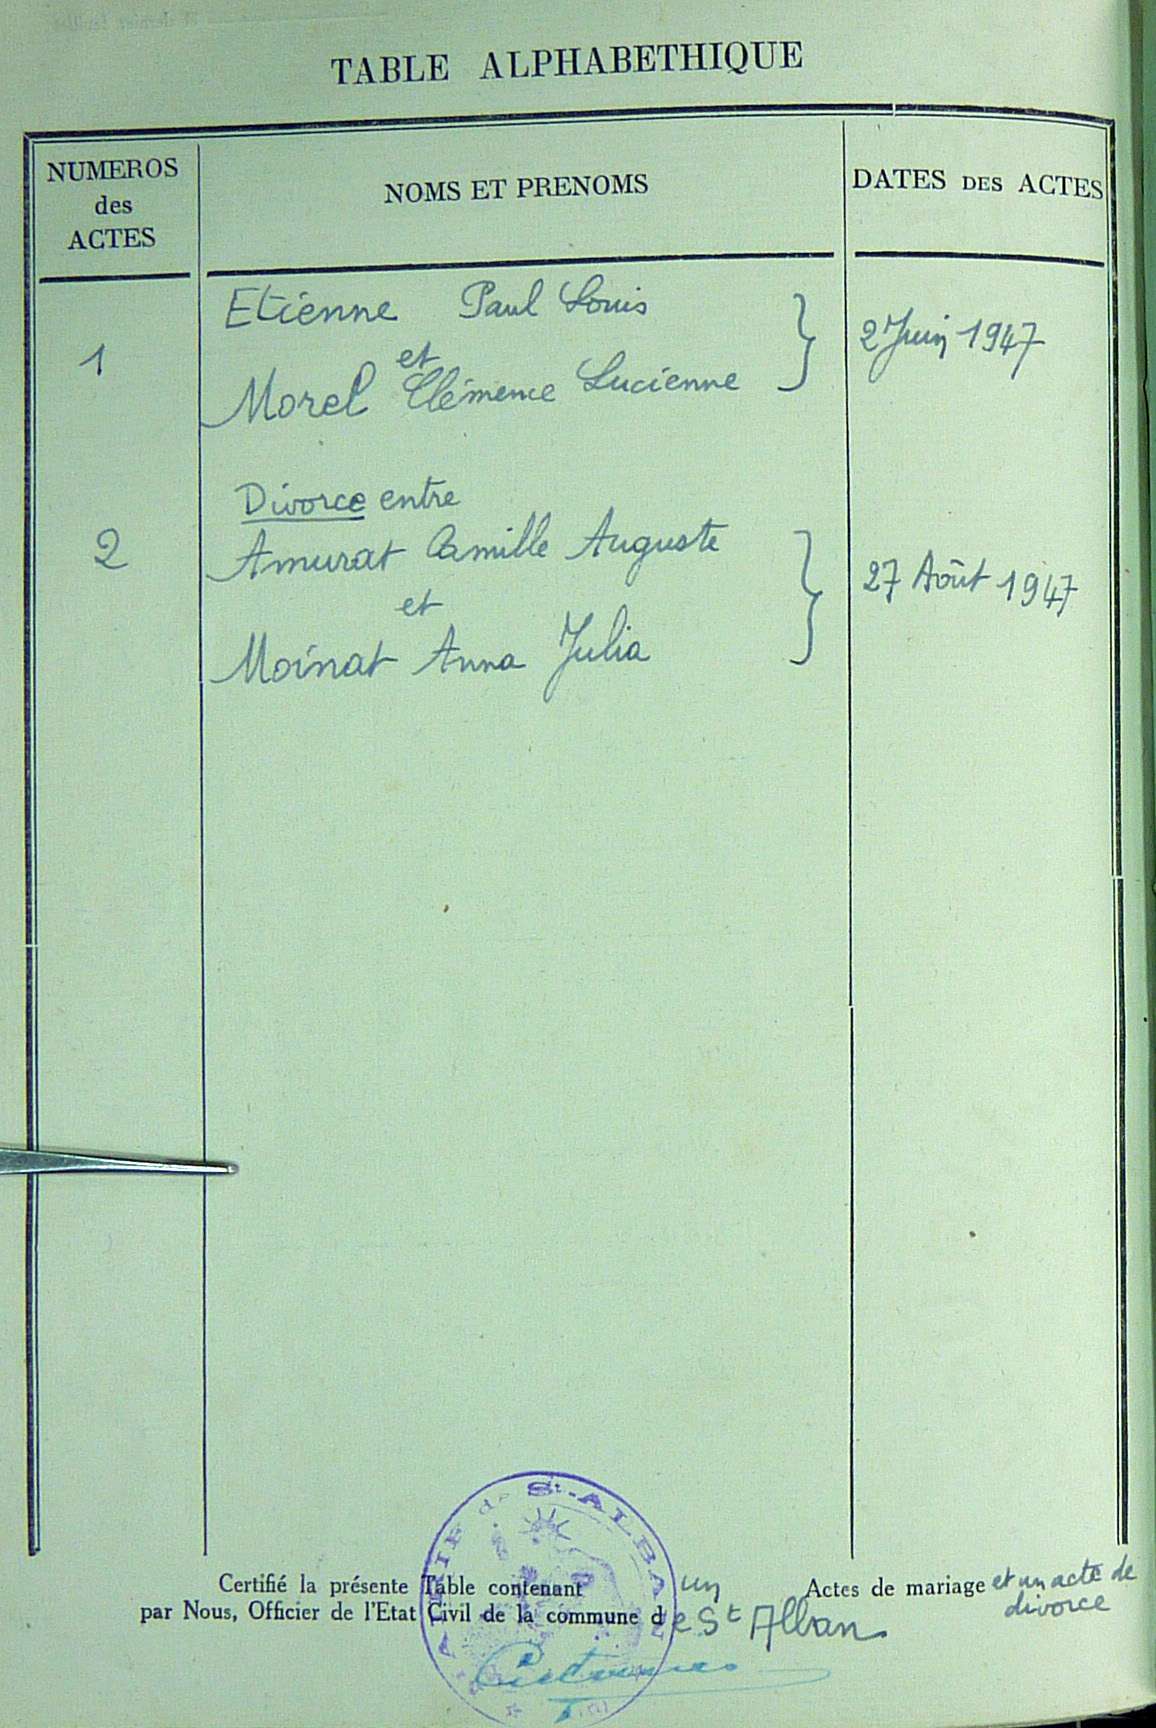 TABLE ALPHABETHIQUE
NUMEROS
des
ACTES
NOMS ET PRENOMS
DATES DES ACTES
Etienne Paul Louis
1
et
2 Juin 1947
Morel Clémence Lucienne
Divorce entre
2
Amurat Camille Auguste
27 Août 1947
et
Moinat Anna Julia
MAIRIE de St-ALBAN
Certifié la présente Table contenant un Actes de mariage et un acte de
divorce
par Nous, Officier de l'Etat Civil de la commune de St Alban